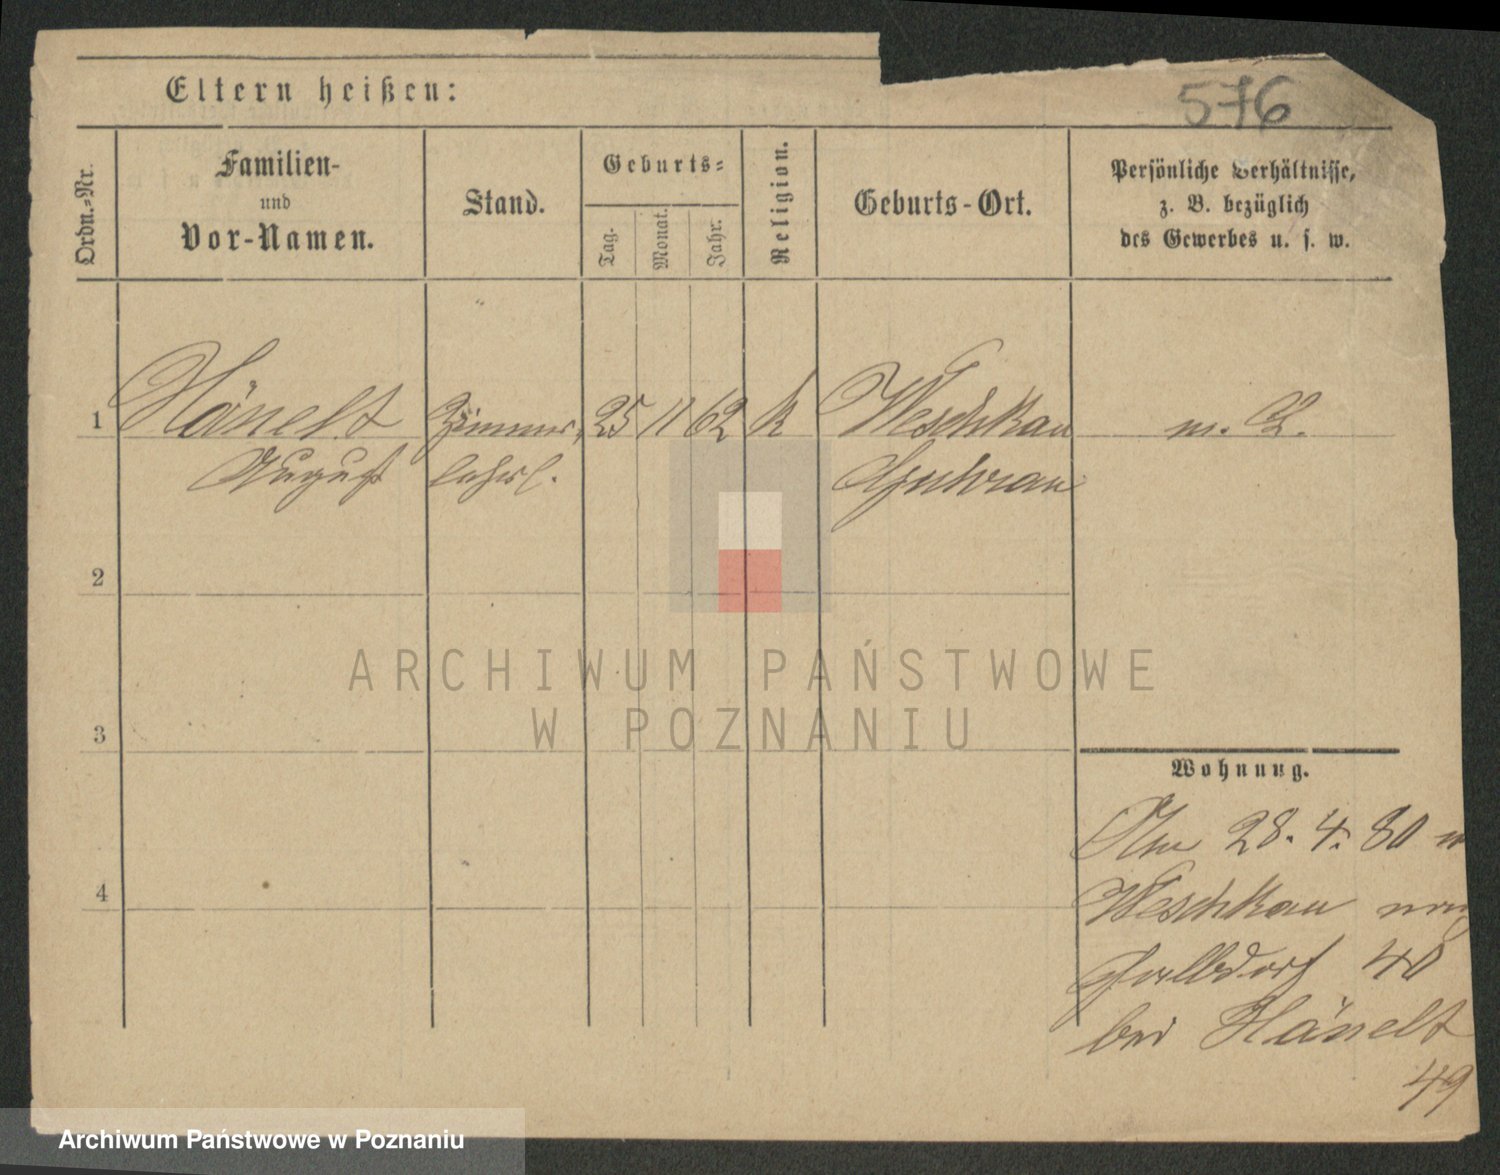 576
Eltern heißen:
Ordn.-Nr.
Familien-
und
Vor-Namen.
Stand.
Geburts-
Tag.
Monat.
Jahr.
Religion.
Geburts-Ort.
Persönliche Verhältnisse,
z. B. bezüglich
des Gewerbes u. s. w.
1 Hänelt Zimmer- 25 11 62 k Weschkau m. L.
August lehrl. Guhrau
2
3
4
Wohnung.
Am 28. 4. 80 v
Weschkau nach
40
bei Hänelt
49
ARCHIWUM PAŃSTWOWE
W POZNANIU
Archiwum Państwowe w Poznaniu